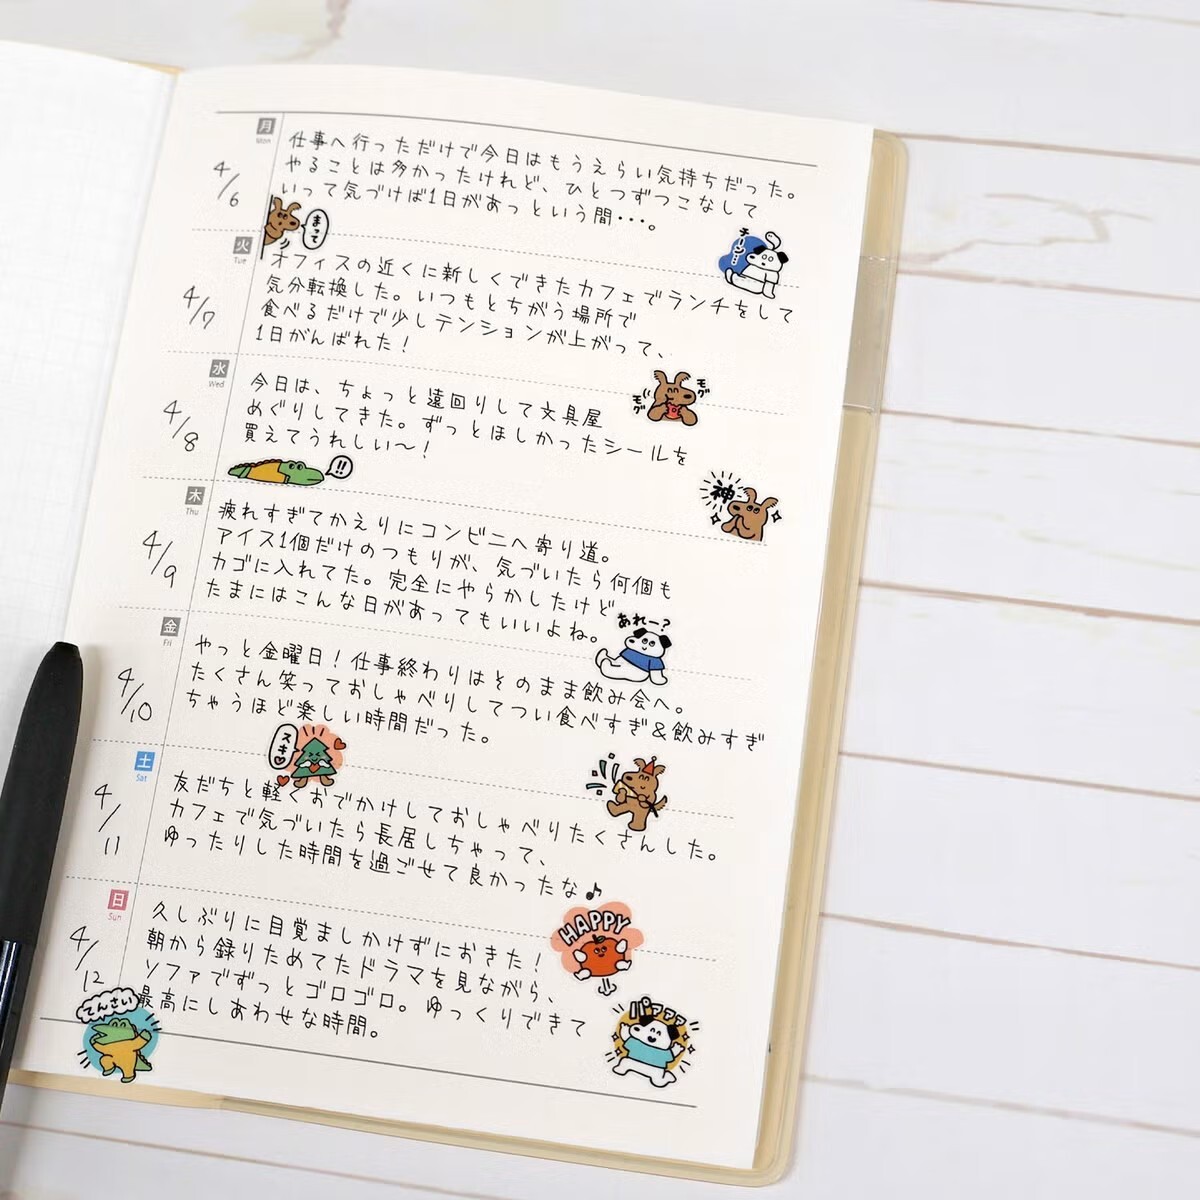 月
Mon
4/6
仕事へ行っただけで今日はもうえらい気持ちだった。
やることは多かったけれど、ひとつずつこなして
いって気づけば1日があっという間・・・。
まって
チーン…
火
Tue
4/7
オフィスの近くに新しくできたカフェでランチをして
気分転換した。いつもとちがう場所で
食べるだけで少しテンションが上がって、
1日がんばれた！
モグ
モグ
水
Wed
4/8
今日は、ちょっと遠回りして文具屋
めぐりしてきた。ずっとほしかったシールを
買えてうれしい〜！
!!
神
木
Thu
4/9
疲れすぎてかえりにコンビニへ寄り道。
アイス1個だけのつもりが、気づいたら何個も
カゴに入れてた。完全にやらかしたけど
たまにはこんな日があってもいいよね。
あれー？
金
Fri
4/10
やっと金曜日！仕事終わりはそのまま飲み会へ。
たくさん笑っておしゃべりしてつい食べすぎ&飲みすぎ
ちゃうほど楽しい時間だった。
スキ♡
土
Sat
4/11
友だちと軽くおでかけしておしゃべりたくさんした。
カフェで気づいたら長居しちゃって、
ゆったりした時間を過ごせて良かったな♪
HAPPY
日
Sun
4/12
久しぶりに目覚ましかけずにおきた！
朝から録りためてたドラマを見ながら、
ソファでずっとゴロゴロ。ゆっくりできて
最高にしあわせな時間。
てんさい
パァァァ